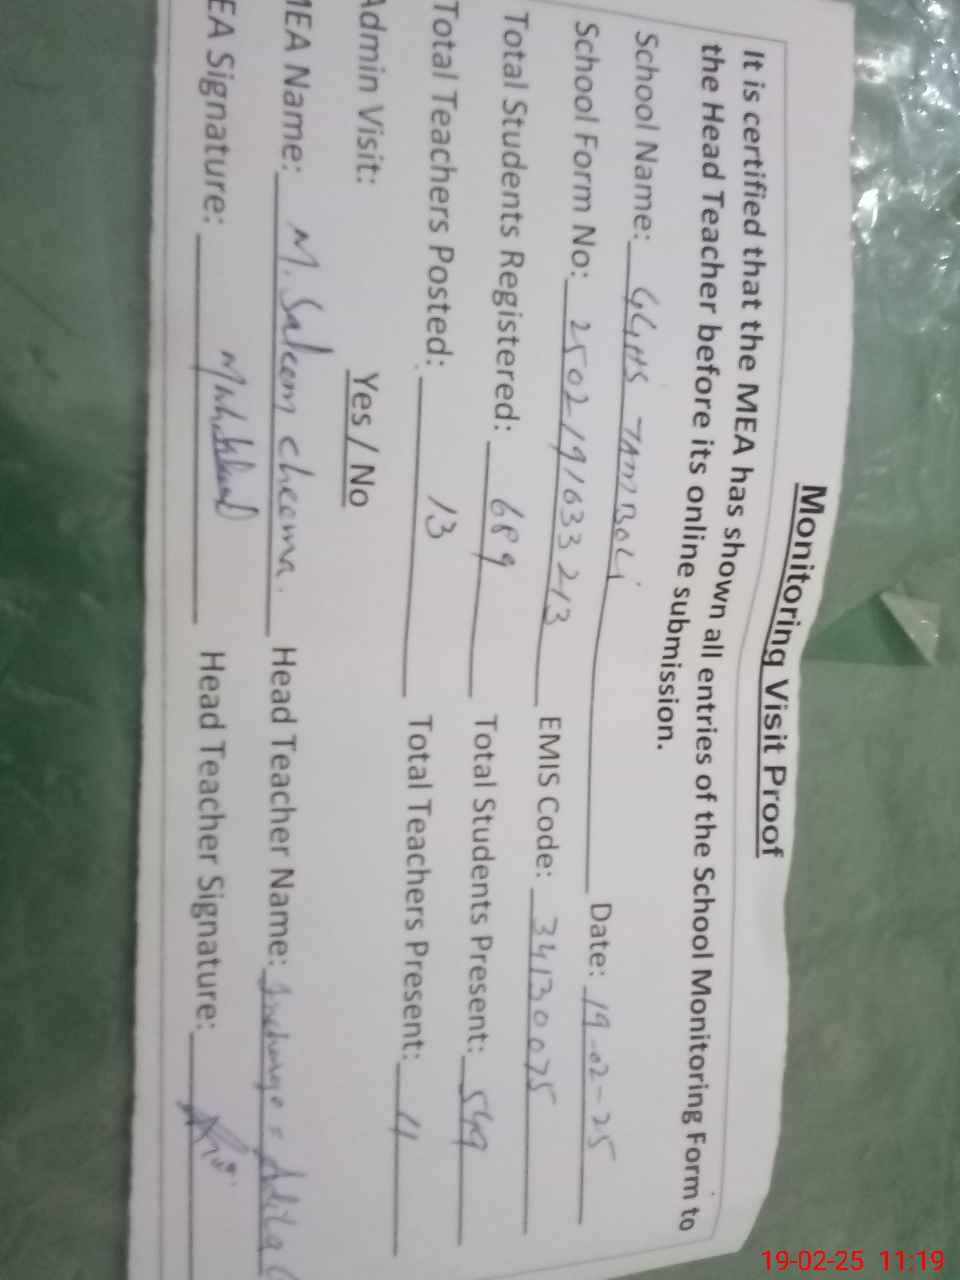 Monitoring Visit Proof
It is certified that the MEA has shown all entries of the School Monitoring Form to
the Head Teacher before its online submission.
School Name: GGHS TAMBOLI Date: 19-02-25
School Form No: 2502191633213 EMIS Code: 34130075
Total Students Registered: 689 Total Students Present: 549
Total Teachers Posted: 13 Total Teachers Present: 11
Admin Visit: Yes / No
MEA Name: M. Saleem Cheema. Head Teacher Name: Incharge = Adila
EA Signature: Head Teacher Signature:
19-02-25 11:19